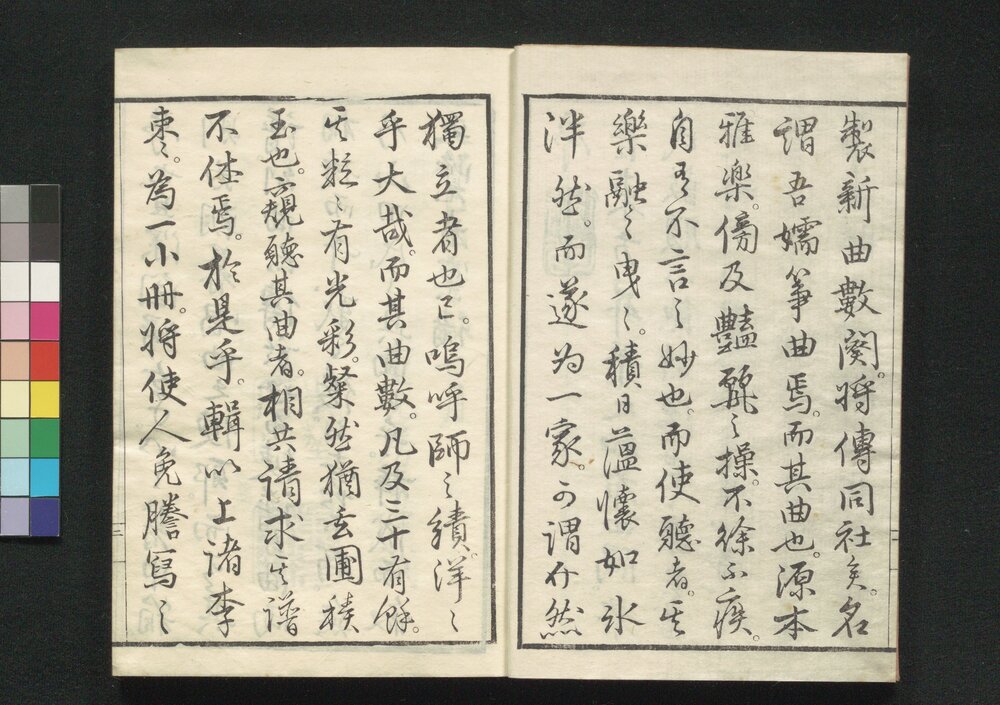 製新曲數闋。將傳同社矣。名
謂吾嬬箏曲焉。而其曲也。源本
雅樂。傍及豔麗之操。不徐不疾。
自有不言之妙也。而使聽者。其
樂融々曳々。積日薀懷如氷
泮然。而遂为一家。可謂介然
獨立者也已。嗚呼師之績。洋々
乎大哉。而其曲數。凡及三十有餘。
其粒々有光彩。粲然猶玄圃積
玉也。竊聽其曲者。相共請求其譜
不休焉。於是乎。輯以上諸李
棗。為一小冊。將使人免謄寫之
三